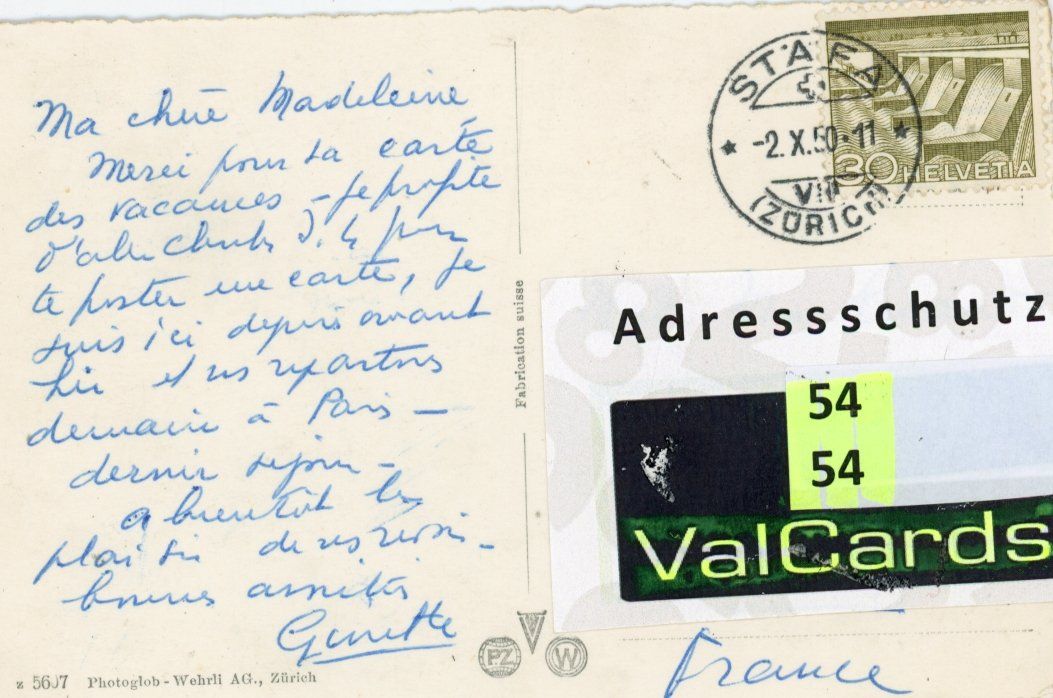 Ma chère Madeleine
Merci pour ta carte
des vacances - Je profite
te poster une carte, je
suis ici depuis avant
hier et ns repartons
demain à Paris —
dernier séjour -
a bientôt le
plaisir de ns revoir -
bonnes amitiés
Ginette
z 5607 Photoglob-Wehrli AG., Zürich
Fabrication suisse
PZ
W
STÄFA
-2.X.50-11
VIII
(ZÜRICH)
30 HELVETIA
Adressschutz
54
54
ValCards
France